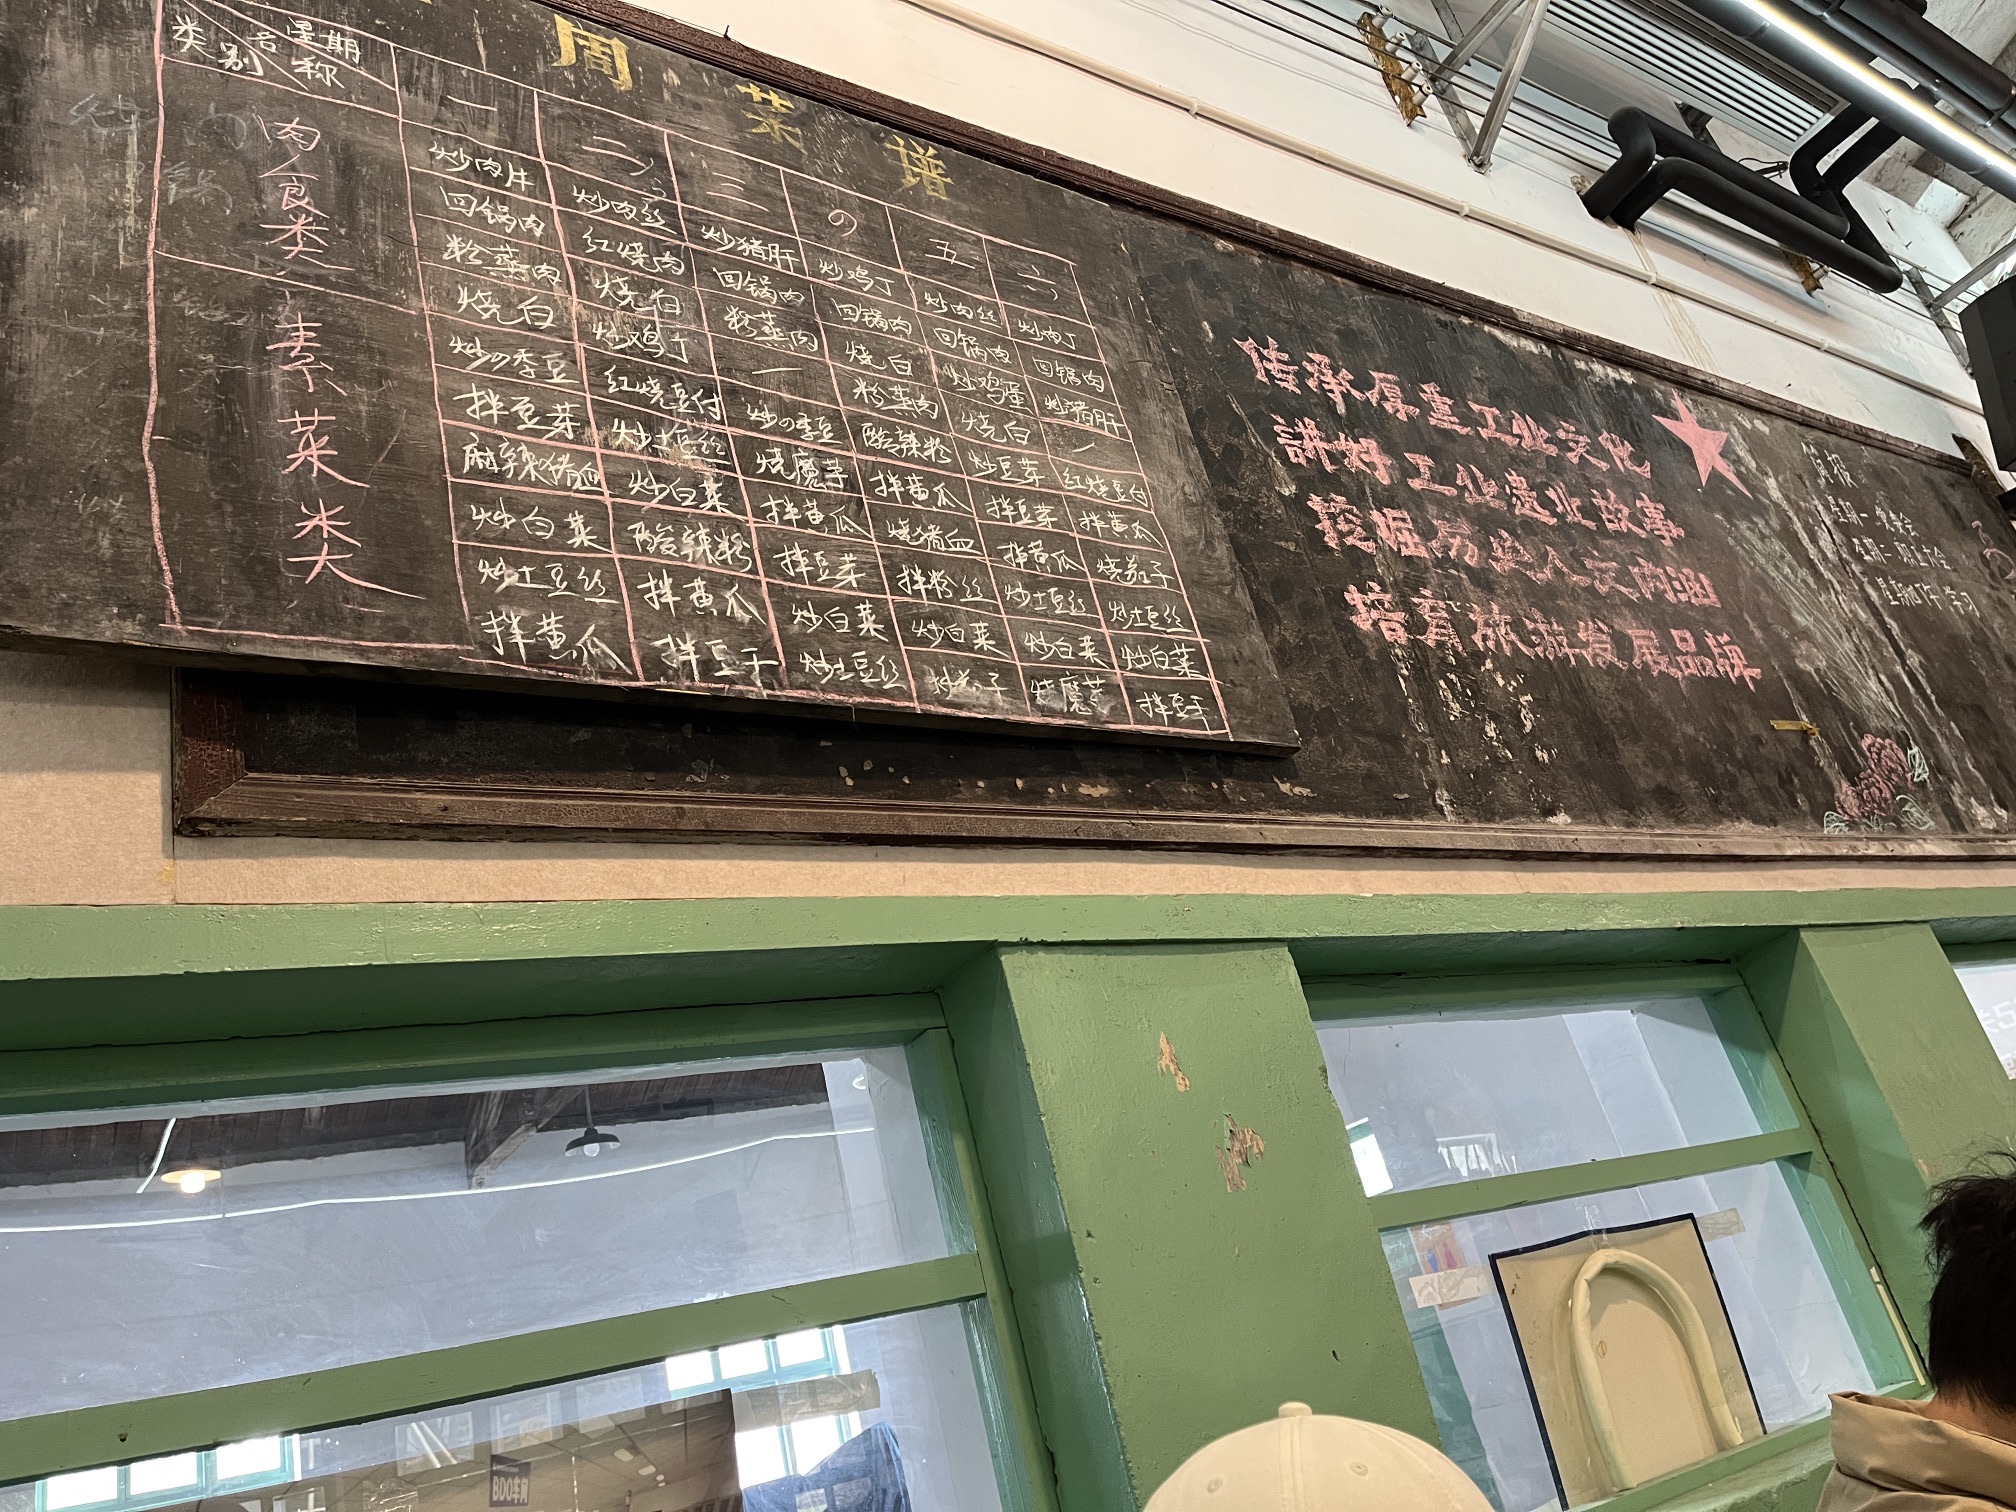 周菜谱
星期
名称
类别
一 二 三 の 五 六
肉食类
炒肉片 炒肉丝 炒猪肝 炒鸡丁 炒肉丝 炒肉丁
回锅肉 红烧肉 回锅肉 回锅肉 回锅肉 回锅肉
粉蒸肉 烧白 粉蒸肉 烧白 炒鸡蛋 炒猪肝
烧白 炒鸡丁 一 粉蒸肉 烧白 一
素菜类
炒の季豆 红烧豆付 炒の季豆 酸辣粉 炒豆芽 红烧豆付
拌豆芽 炒土豆丝 烧魔芋 拌黄瓜 拌豆芽 拌黄瓜
麻辣猪血 炒白菜 拌黄瓜 烧猪血 拌黄瓜 烧茄子
炒白菜 酸辣粉 拌豆芽 拌粉丝 炒土豆丝 炒土豆丝
炒土豆丝 拌黄瓜 炒白菜 炒白菜 炒白菜 炒白菜
拌黄瓜 拌豆干 炒土豆丝 烧魔芋 拌豆干
传承原重工业文化
讲好工业遗业故事
挖掘历史人文内涵
培育旅游发展品牌
简报
星期一
星期二 职工大会
星期四下午学习
BDO车间